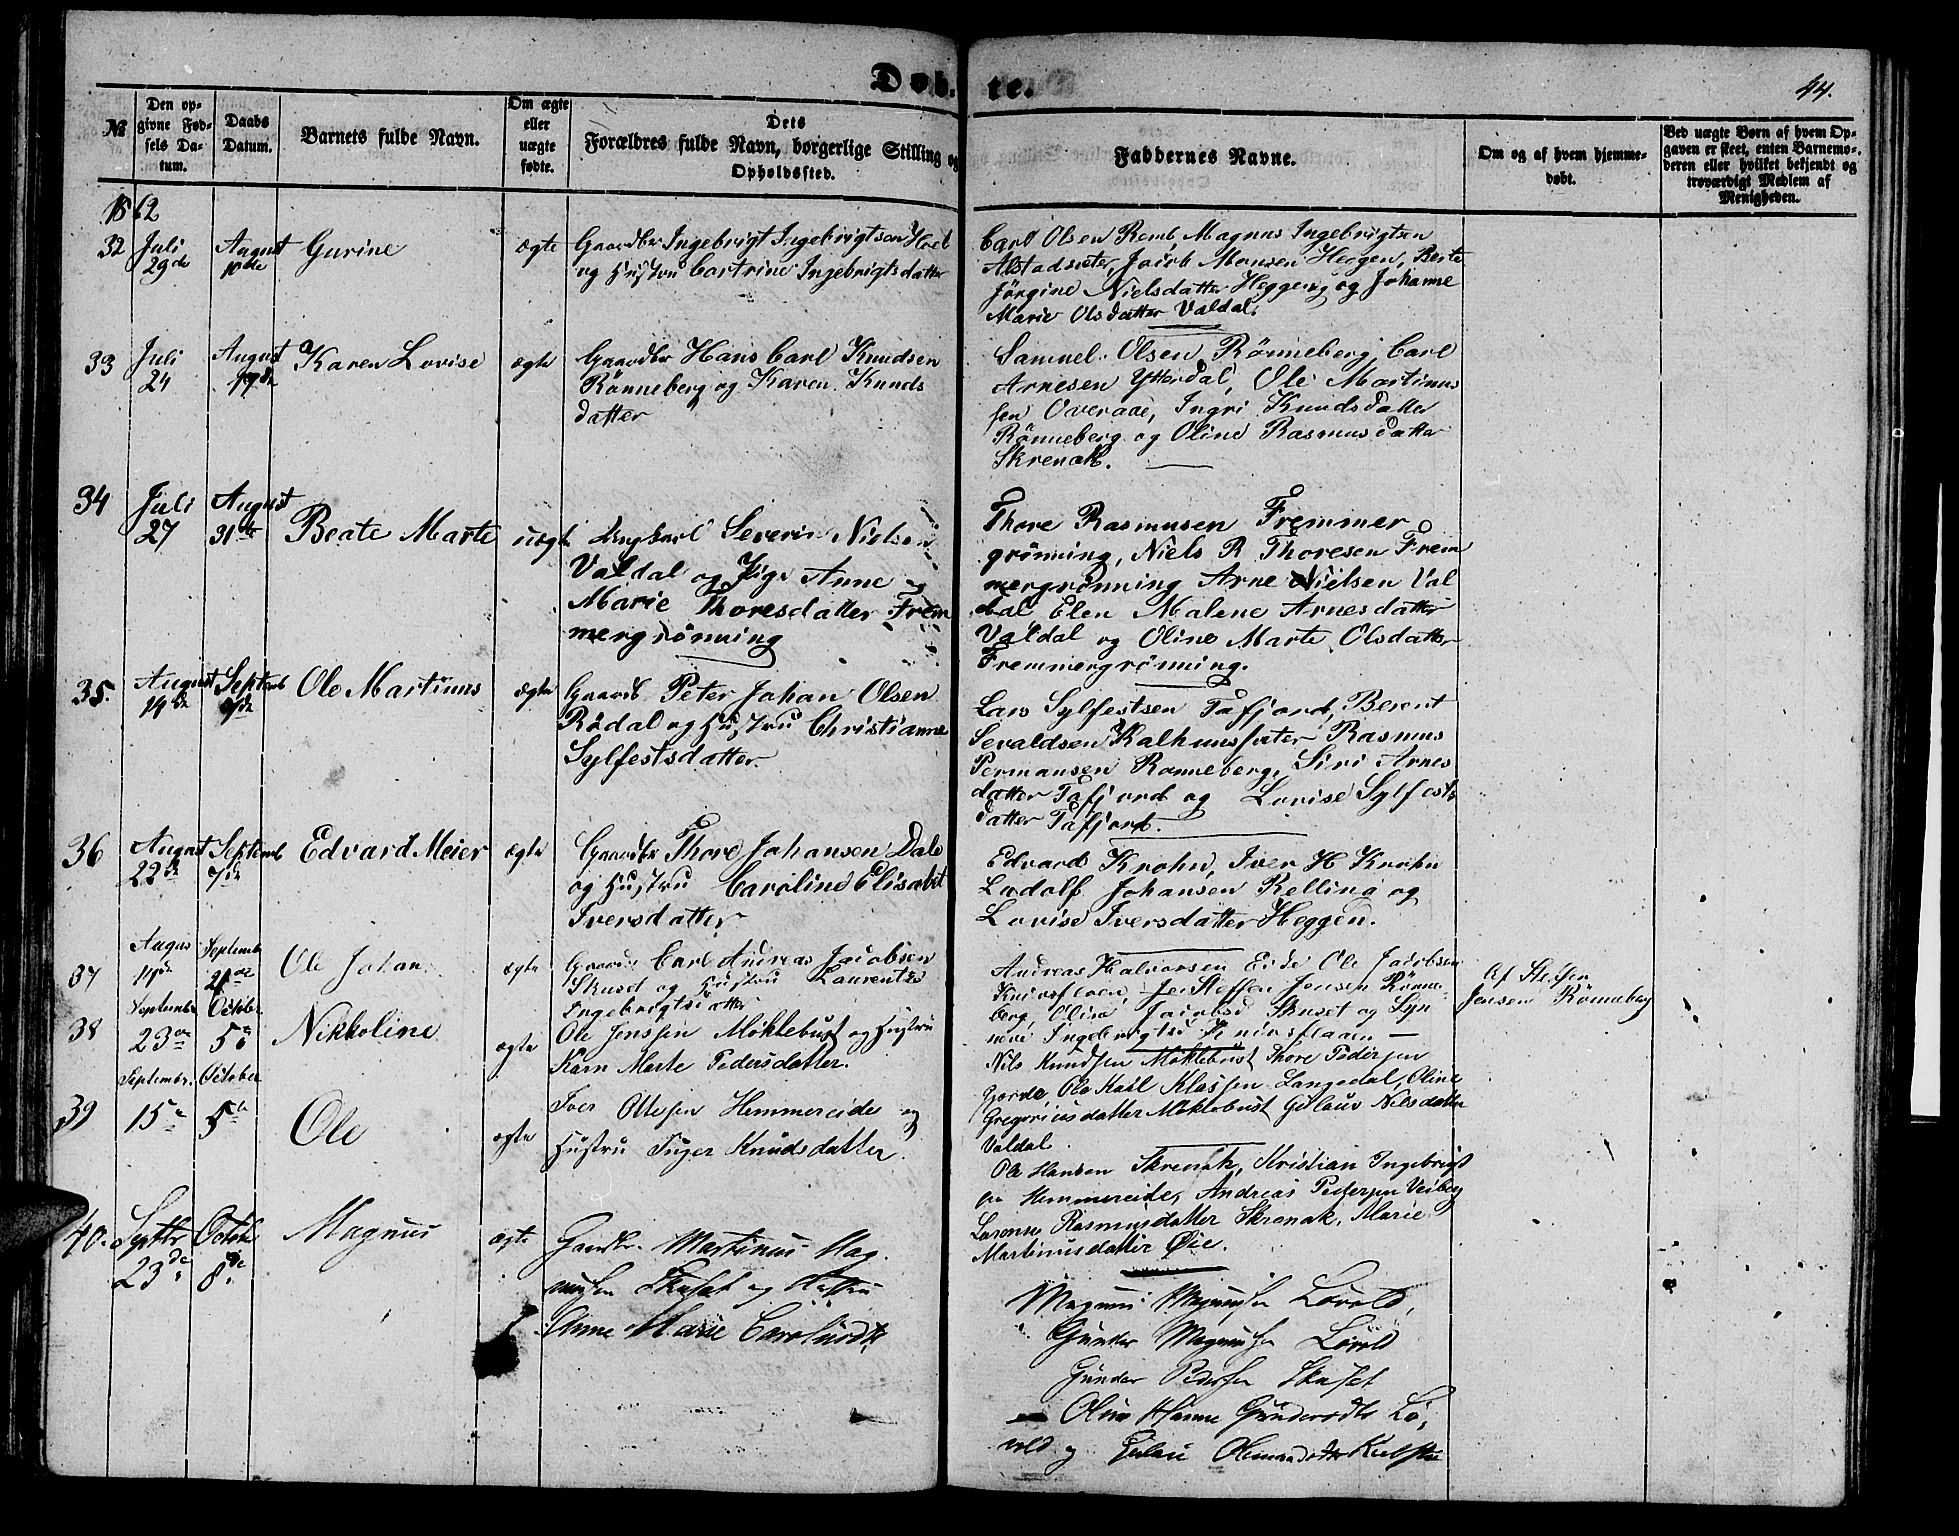 Døbte.
44.
№
Den opgivne Fødsels Datum.
Daabs Datum.
Barnets fulde Navn.
Om ægte eller uægte fødte.
Dets Forældres fulde Navn, borgerlige Stilling og Opholdssted.
Faddernes Navne.
Om og af hvem hjemmedøbt.
Ved uægte Børn af hvem Opgaven er skeet, enten Barnemoderen eller hvilket bekjendt og troværdigt Medlem af Menigheden.
1862
32 Juli 29de August 10de Gurine ægte
Gaardbr Ingebrigt Ingebrigtsen
og Hustru Cartrine Ingebrigtsdatter
Carl Olsen Remb, Magnus Ingebrigtsen
Alstadsæter, Jacob Monsen Heggen, Berte
Jörgine Nielsdatter Heggen og Johanne
Marie Olsdatter Valdal.
33 Juli 24 August Karen Lovise ægte
Gaardbr Hans Carl Knudsen
Rönneberg og Karen Knuds
datter
Samuel Olsen Rönneberg, Carl
Arnesen Ytterdal, Ole Martinus
sen Overaae, Ingri Knudsdatter
Rönneberg og Oline Rasmusdatter
Skrenak.
34 Juli 27 August 31te Beate Marte uægte
Ungkarl Severin Nielsen
Valdal og Pige Anne
Marie Thoresdatter Frem
mergrönning
Thore Rasmusen Fremmer
grönning, Niels R Thoresen Frem
mergrönning Arne Nielsen Val
dal Elen Malene Arnesdatter
Valdal og Oline Marte Olsdatter
Fremmergrönning.
35. August 14de Septemb 7de Ole Martinus ægte
Gaardb Peter Johan Olsen
Rödal og Hustru Christianne
Sylfestsdatter
Lars Sylfestsen Tafjord, Berent
Sevaldsen Kalhussæter Rasmus
Permansen Rønneberg, Siri Arnes
datter Tafjord og Lovise Sylfests
datter Tafjord.
36 August 22de Septemb 7de Edvard Meier ægte
Gaardbr Thore Johansen Dale
og Hustru Caroline Elisabet
Iversdatter
Edvard Krohn, Iver H Krohn
Ludolf Johansen Relling og
Lovise Iversdatter Heggen.
37 Augus 14de September 21de Ole Johan ægte
Carl Andreas Jacobsen
Skuset og Hustru Laurentse
Ingebrigtsdatter
Andreas Halvorsen Eide Ole Jacobsen
Steffen Jensen Rönne-
berg Oline Jacobsd Skuset og Syn
neve Ingebrigtsd
Af Steffen
Jensen Rönneberg
38 September 23de October 5te Nikkoline ægte
Ole Jenssen Möklebust og Hustru
Karn Marte Pedersdatter.
Nils Knudsen Möklebust Thore Pedersen
Gjorde, Ole Karl Klassen Langedal, Oline
Gregoriusdatter Möklebust Nilsdatter
Valdal
39 Septembr. 15de October 5te Ole ægte
Iver Ottesen Hemmereide og
Hustru Inger Knudsdatter.
Ole Hansen Skrenak, Kristian Ingebrigt
sen Hemmereide, Andreas Pedersen Veiberg
Rasmusdatter Skrenak, Marie
Martinusdatter Øie.
40. Septbr 23de Octobr 8de Magnus ægte
Gaardbr. Martinus Mag
nussen Skuset og Hustru
Anne Marie
Magnus Magnussen Lövold,
Gunder Magnussen Lövold
Gunder Pedersen Skuset
Oline Hanne Gundersdtr Lö
vold og